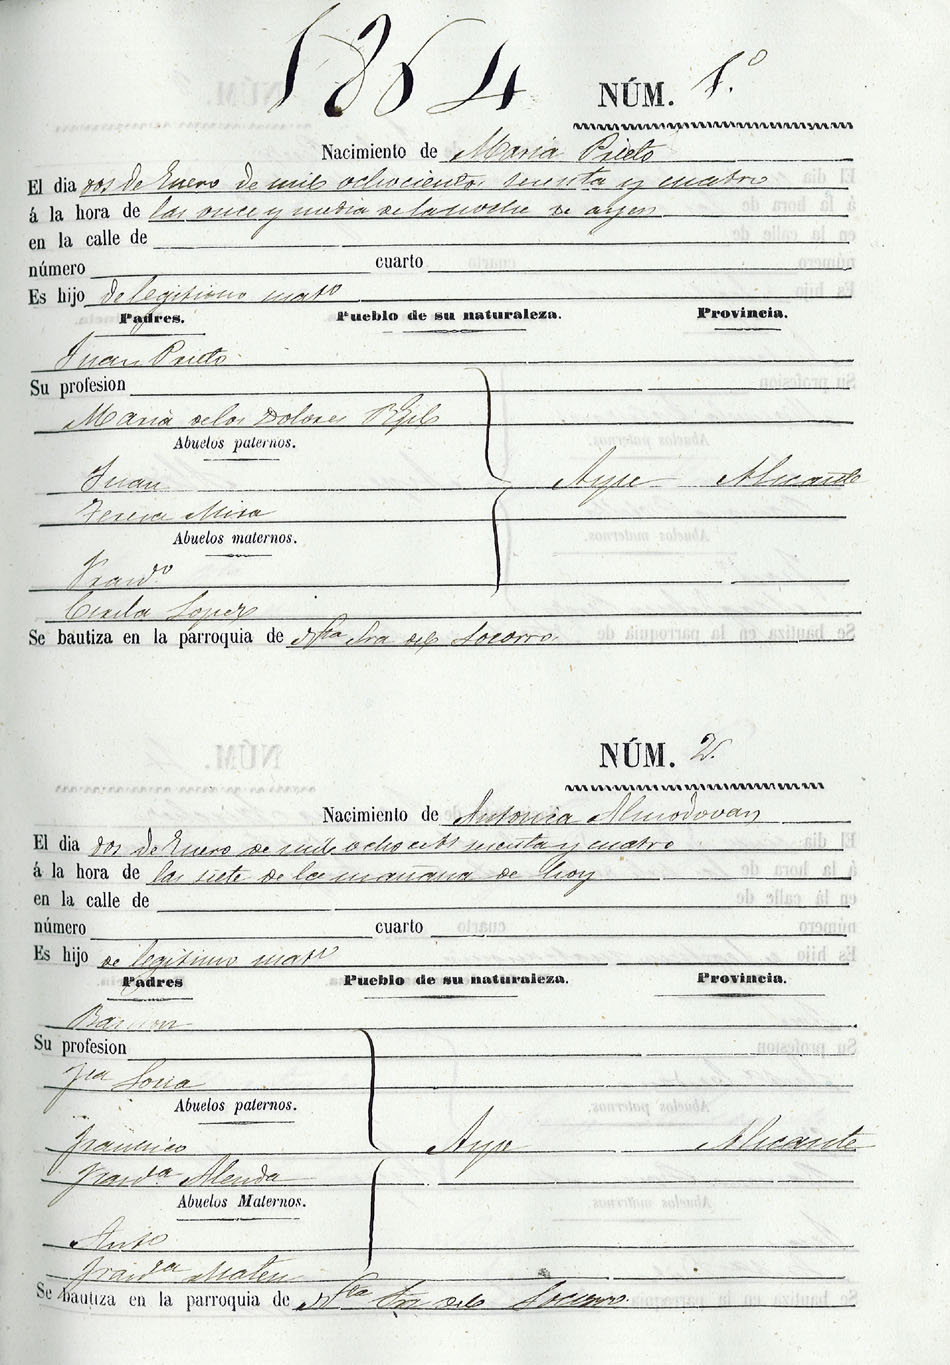 1864
NÚM. 1.º
Nacimiento de Maria Prieto
El dia dos de Enero de mil ochocientos sesenta y cuatro
á la hora de las once y media de la noche de ayer
en la calle de
número cuarto
Es hijo de legitimo matº
Padres. Pueblo de su naturaleza. Provincia.
Juan Prieto
Su profesion
Maria de los Dolores
Abuelos paternos.
Juan Aspe Alicante
Teresa Mira
Abuelos maternos.
Franco
Lopez
Se bautiza en la parroquia de Ntra Sra del Socorro
NÚM. 2.
Nacimiento de Antonia Almodovar
El dia dos de Enero de mil ochocts sesenta y cuatro
á la hora de las siete de la mañana de hoy
en la calle de
número cuarto
Es hijo de legitimo matº
Padres Pueblo de su naturaleza. Provincia.
Ramon
Su profesion
Fca Soria
Abuelos paternos.
Francisco Aspe Alicante
Franca Alenda
Abuelos Maternos.
Anto
Franca Mateu
Se bautiza en la parroquia de Ntra Sra del Socorro.